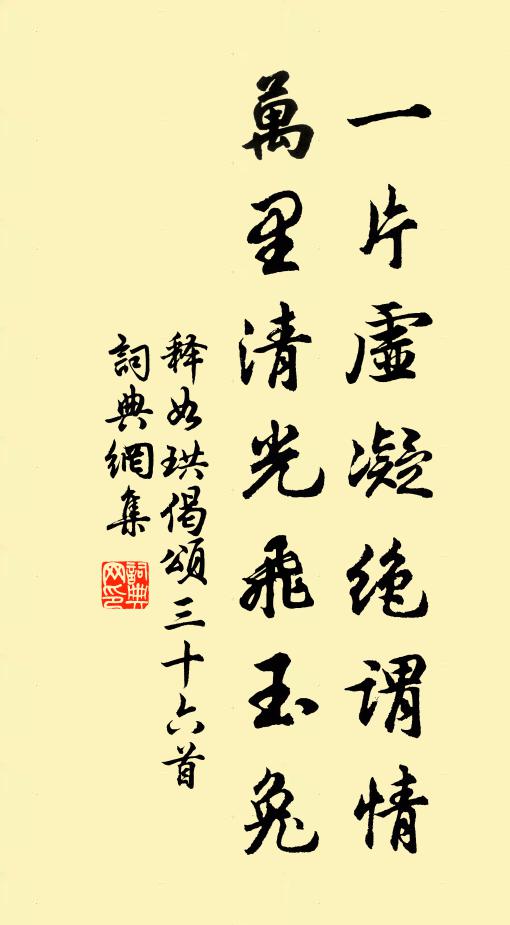 一片虛凝絶謂情
萬里清光飛玉兔
釋如珙偈頌三十六首
詞典網集
詞典
网印